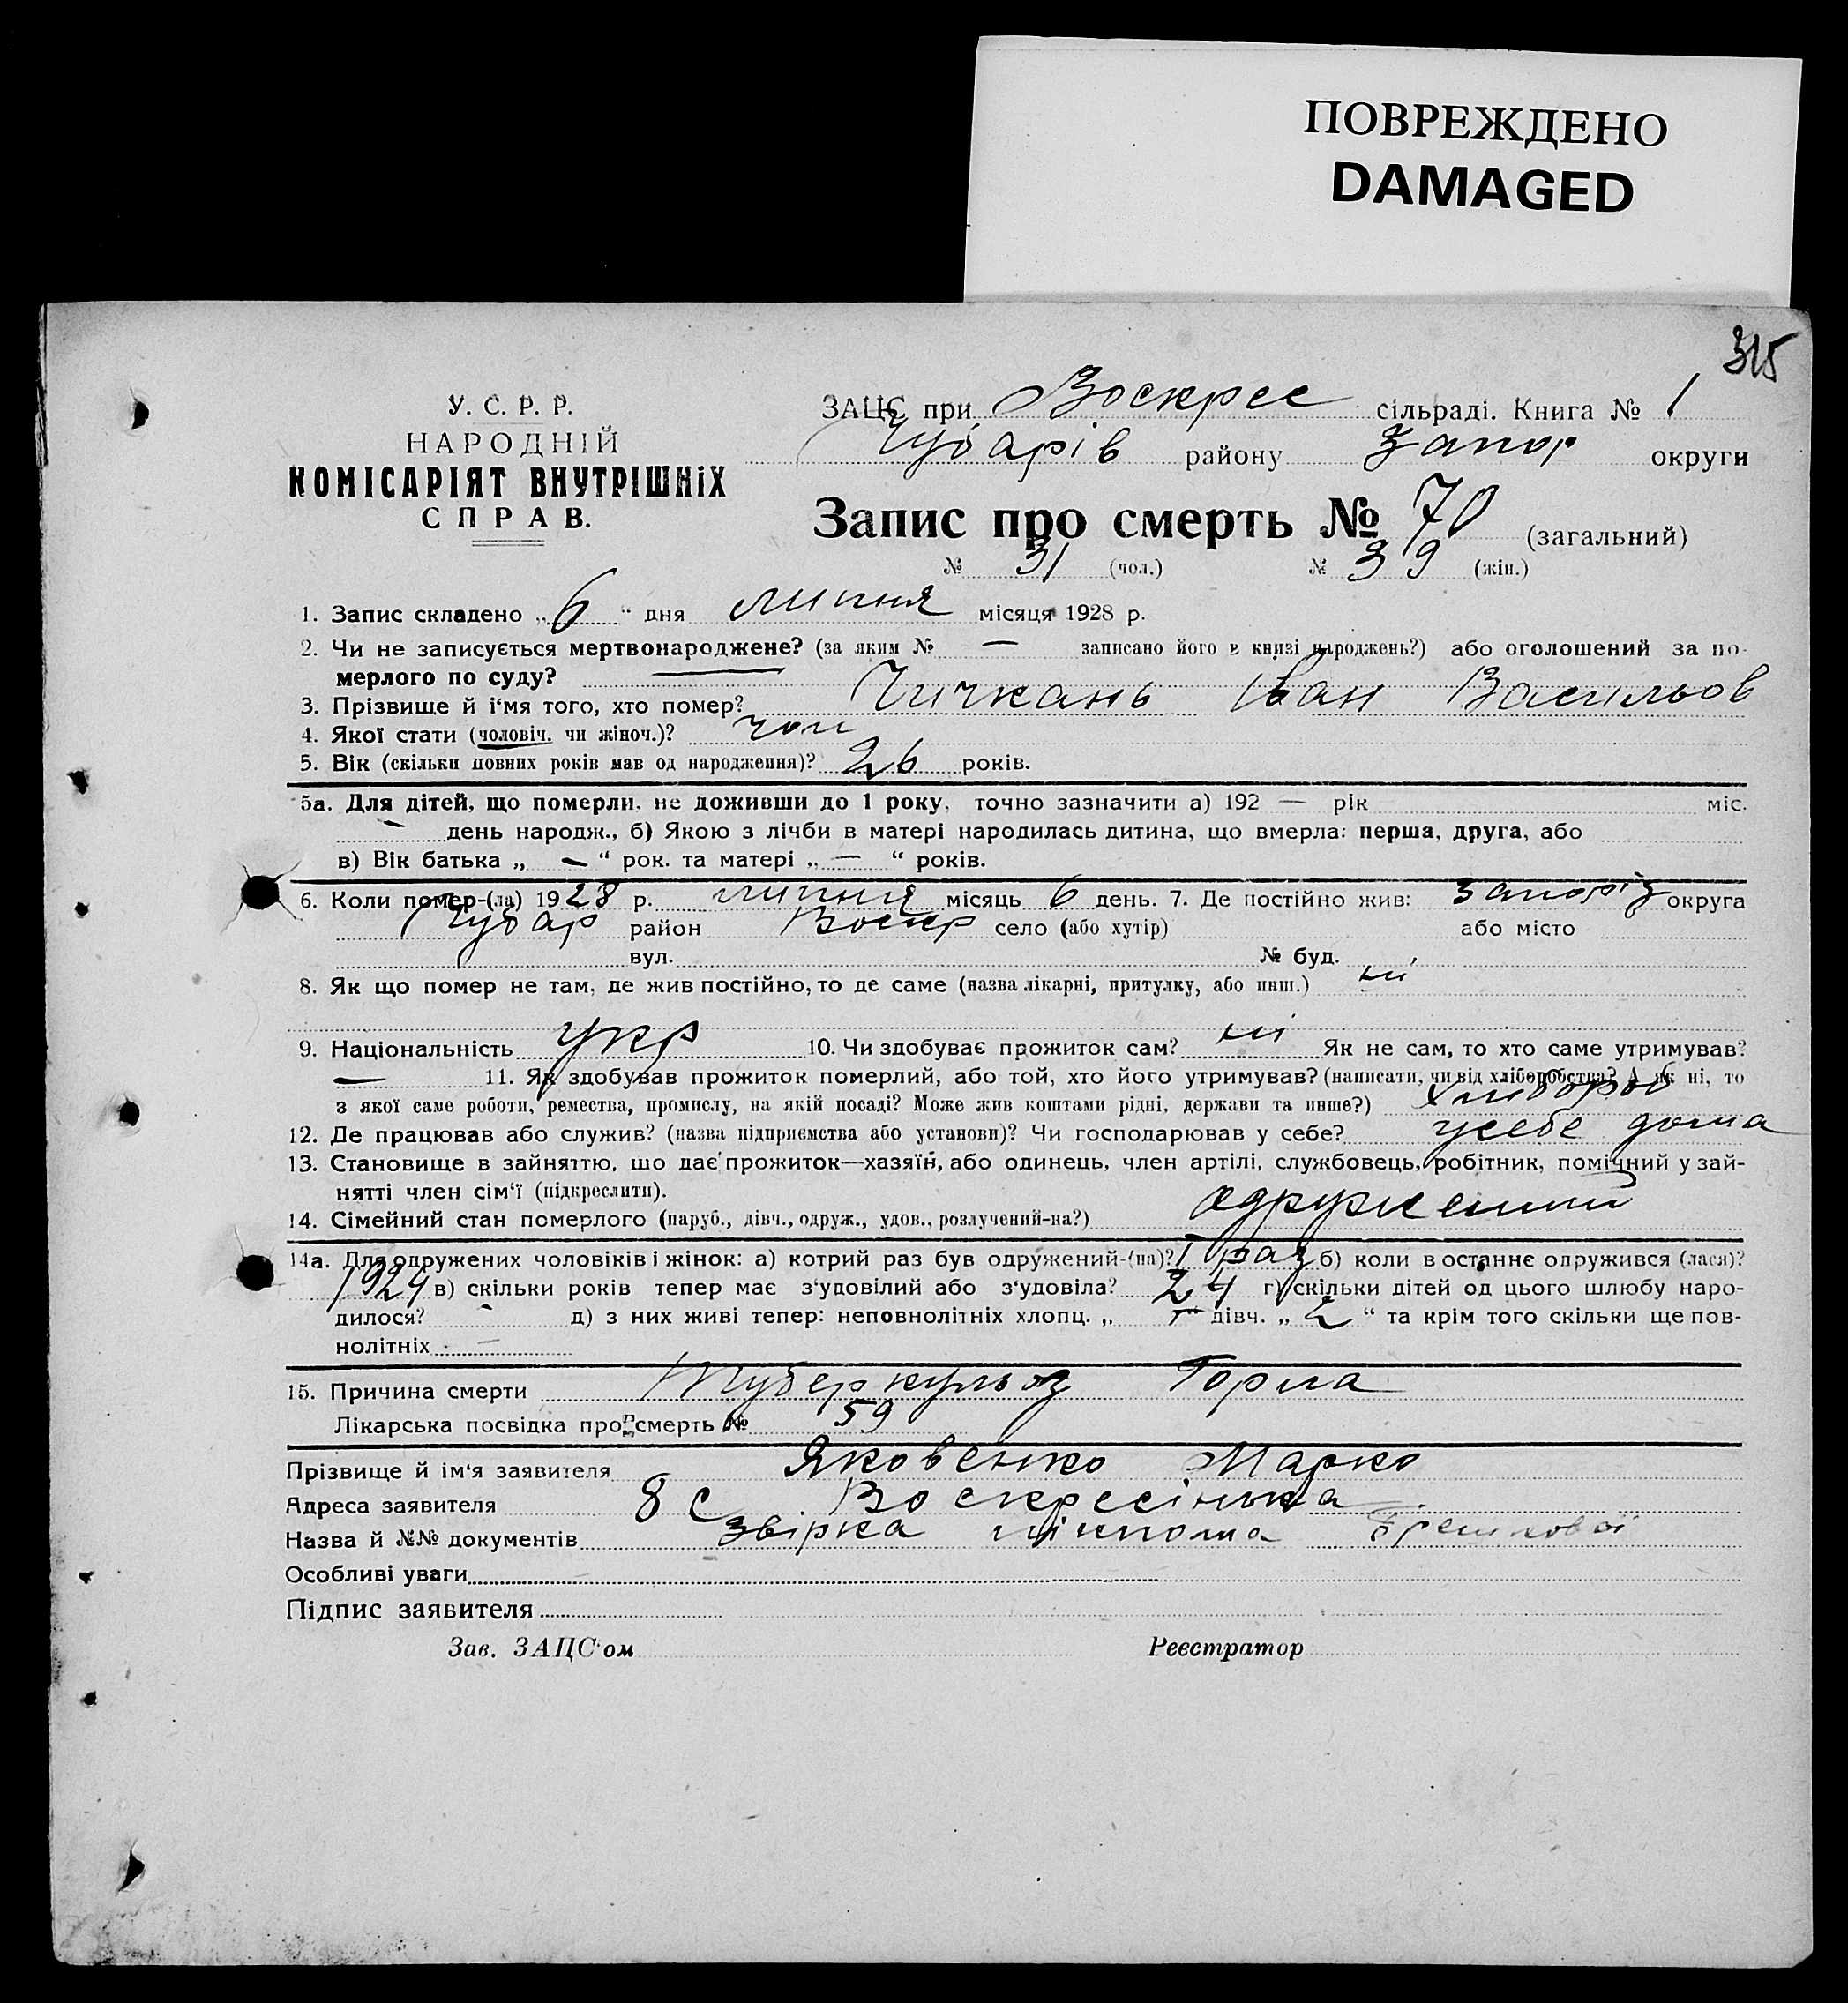 ПОВРЕЖДЕНО
DAMAGED
315
У. С. Р. Р.
НАРОДНІЙ
КОМІСАРІЯТ ВНУТРІШНіХ
СПРАВ.
ЗАЦС при Воскрес сільраді. Книга № 1
Чубарів району Запор округи
Запис про смерть № 70 (загальний)
№ 31 (чол.) № 39 (жін.)
1. Запис складено „ 6 “ дня липня місяця 1928 р.
2. Чи не записується мертвонароджене? (за яким № — записано його в книзі народжень?) або оголошений за по-
мерлого по суду? —
3. Прізвище й і'мя того, хто помер? Чичкань Іван Васильов
4. Якої стати (чоловіч. чи жіноч.)? чол
5. Вік (скільки повних років мав од народження)? 26 років.
5а. Для дітей, що померли, не доживши до 1 року, точно зазначити а) 192 — рік міс.
— день народж., б) Якою з лічби в матері народилась дитина, що вмерла: перша, друга, або
в) Вік батька „ — “ рок. та матері „ — “ років.
6. Коли помер-(ла) 1928 р. липня місяць 6 день. 7. Де постійно жив: Запоріз округа
Чубар район Воскр село (або хутір) або місто
вул. № буд.
8. Як що помер не там, де жив постійно, то де саме (назва лікарні, притулку, або инш.) ні
9. Національність укр 10. Чи здобуває прожиток сам? ні Як не сам, то хто саме утримував?
— 11. Як здобував прожиток померлий, або той, хто його утримував? (написати, чи від хліборобства? А як ні, то
з якої саме роботи, ремества, промислу, на якій посаді? Може жив коштами рідні, держави та инше?) хлібороб
12. Де працював або служив? (назва підприємства або установи)? Чи господарював у себе? усебе дома
13. Становище в зайняттю, шо дає прожиток—хазяїн, або одинець, член артілі, службовець, робітник, помічний у зай-
нятті член сім'ї (підкреслити).
14. Сімейний стан померлого (паруб., дівч., одруж., удов., розлучений-на?) одружений
14а. Для одружених чоловіків і жінок: а) котрий раз був одружений-(на)? I раз б) коли в останнє одружився (лася)?
1924 в) скільки років тепер має з'удовілий або з'удовіла? 24 г) скільки дітей од цього шлюбу наро-
дилося? - д) з них живі тепер: неповнолітніх хлопц. „ “ дівч. „ 2 “ та крім того скільки ще пов-
нолітніх —
15. Причина смерти Туберкульоз Горла
Лікарська посвідка про смерть № 59
Прізвище й ім'я заявителя Яковенко Марко
Адреса заявителя 8 с Воскресінька
Назва й №№ документів Звірка лікпома
Особливі уваги
Підпис заявителя
Зав. ЗАЦС'ом Реєстратор